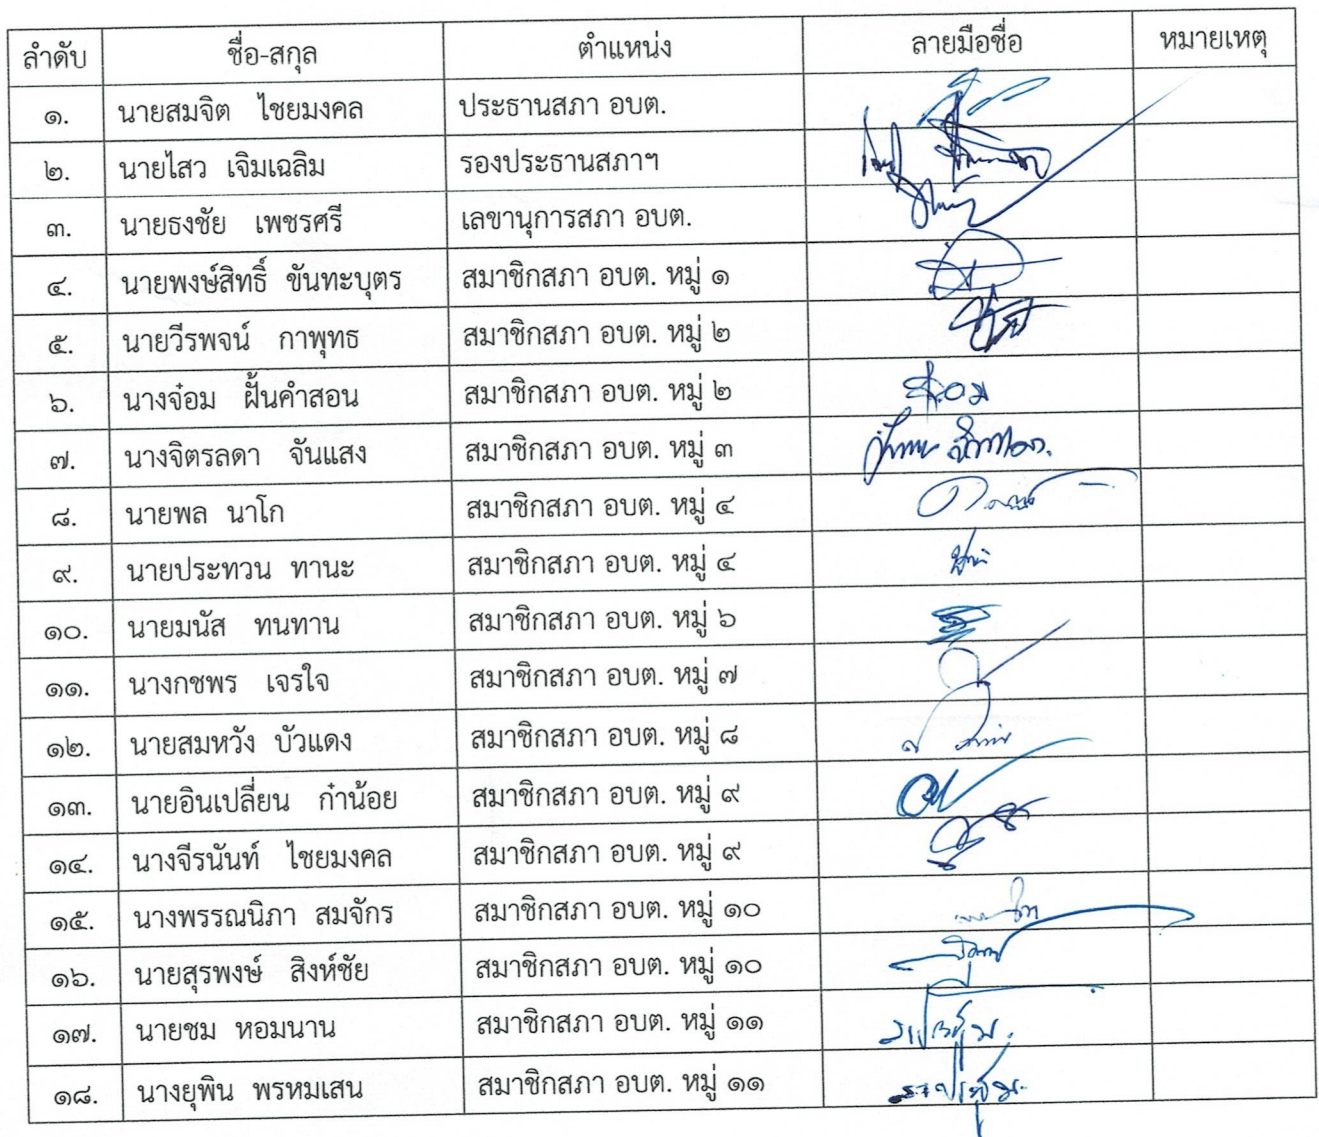 ลำดับ ชื่อ-สกุล ตำแหน่ง ลายมือชื่อ หมายเหตุ
๑. นายสมจิต ไชยมงคล ประธานสภา อบต.
๒. นายไสว เจิมเฉลิม รองประธานสภาฯ
๓. นายธงชัย เพชรศรี เลขานุการสภา อบต.
๔. นายพงษ์สิทธิ์ ขันทะบุตร สมาชิกสภา อบต. หมู่ ๑
๕. นายวีรพจน์ กาพุทธ สมาชิกสภา อบต. หมู่ ๒
๖. นางจ๋อม ฝั้นคำสอน สมาชิกสภา อบต. หมู่ ๒
๗. นางจิตรลดา จันแสง สมาชิกสภา อบต. หมู่ ๓
๘. นายพล นาโก สมาชิกสภา อบต. หมู่ ๔
๙. นายประทวน ทานะ สมาชิกสภา อบต. หมู่ ๔
๑๐. นายมนัส ทนทาน สมาชิกสภา อบต. หมู่ ๖
๑๑. นางกชพร เจรใจ สมาชิกสภา อบต. หมู่ ๗
๑๒. นายสมหวัง บัวแดง สมาชิกสภา อบต. หมู่ ๘
๑๓. นายอินเปลี่ยน ก๋าน้อย สมาชิกสภา อบต. หมู่ ๙
๑๔. นางจีรนันท์ ไชยมงคล สมาชิกสภา อบต. หมู่ ๙
๑๕. นางพรรณนิภา สมจักร สมาชิกสภา อบต. หมู่ ๑๐
๑๖. นายสุรพงษ์ สิงห์ชัย สมาชิกสภา อบต. หมู่ ๑๐
๑๗. นายชม หอมนาน สมาชิกสภา อบต. หมู่ ๑๑
๑๘. นางยุพิน พรหมเสน สมาชิกสภา อบต. หมู่ ๑๑